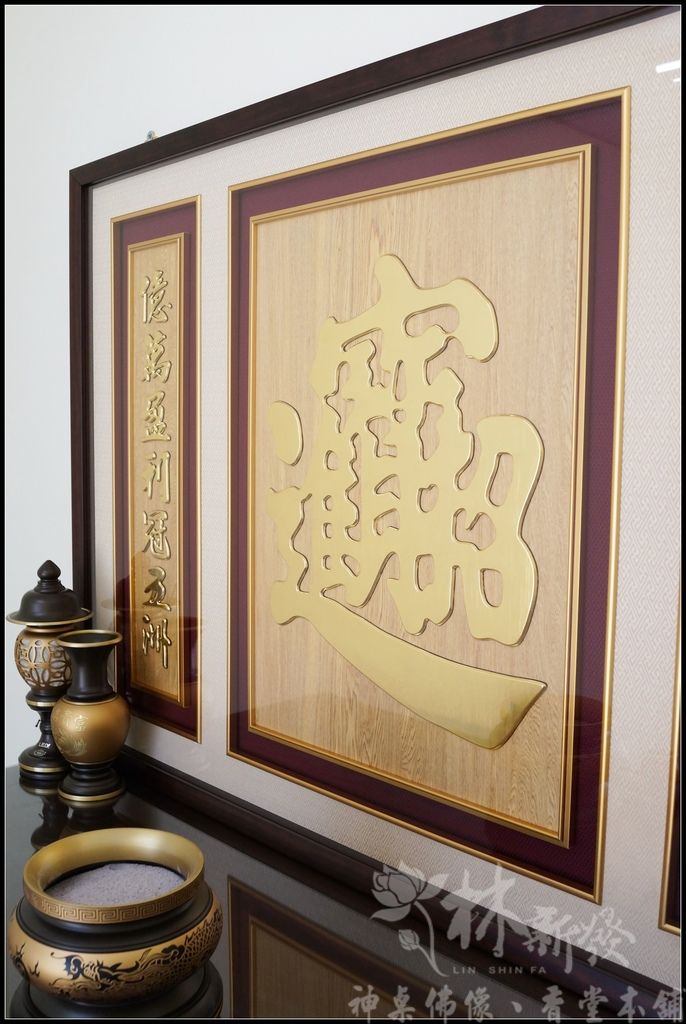 招財進寶
億萬盈利冠亞洲
林新發
LIN SHIN FA
神桌佛像、香堂本舖